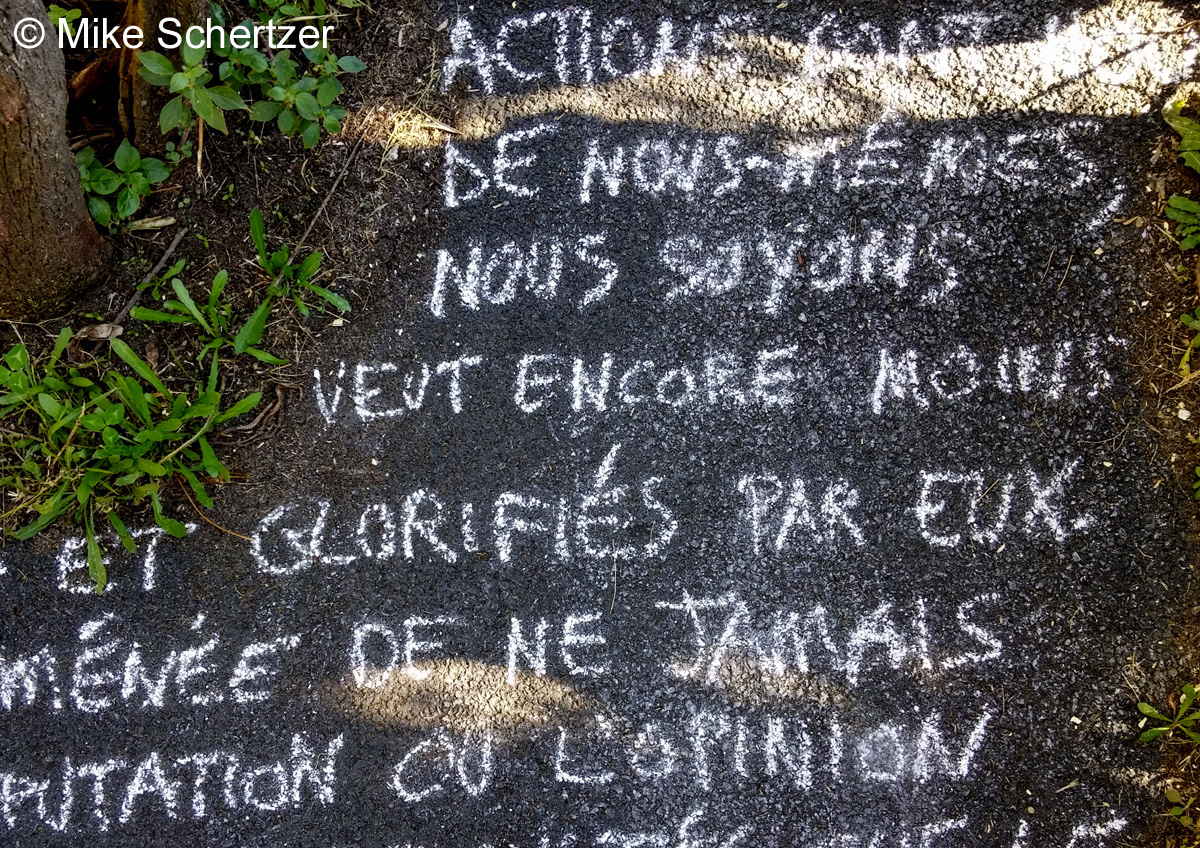 © Mike Schertzer
ACTIONS SONT
DE NOUS-MÉMES,
NOUS SOYONS
VEUT ENCORE MOINS
ET GLORIFIÉS PAR EUX.
MÉNÉE DE NE JAMAIS
PUTATION OU L'OPINION